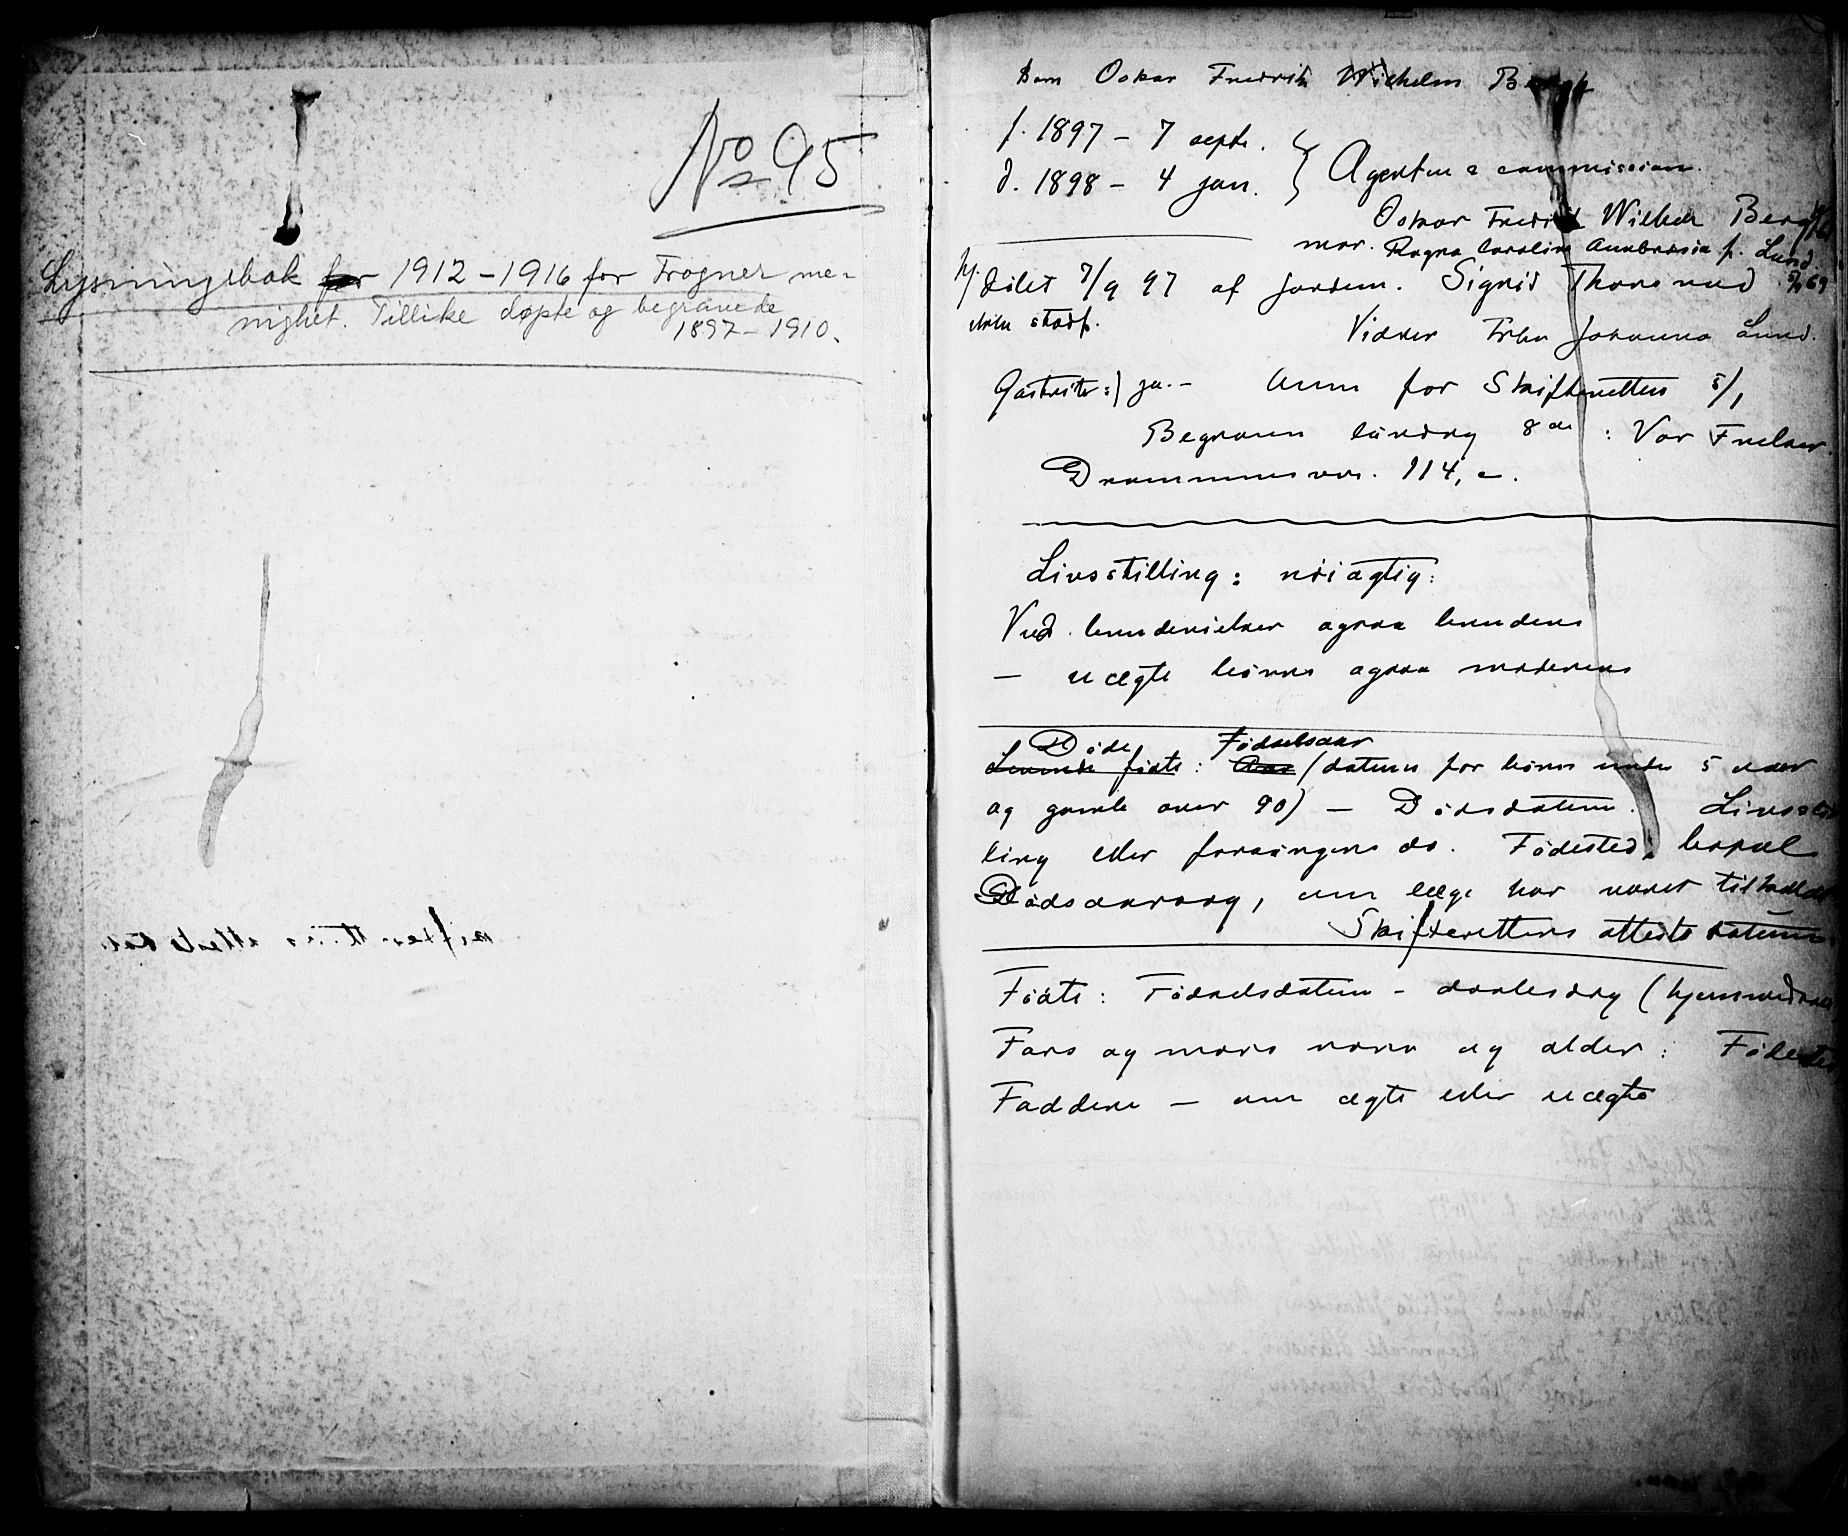 No 95
Lysningsbok for 1912-1916 for Frogner me-
nighet. Tillike døpte og begravede
1897-1910.
Barn Oskar Fredrik Wilhelm Bergh
f. 1897 - 7 septr.
d. 1898 - 4 jan. } Agentur & commission.
Oskar Fredrik Wilhelm Bergh
mor. Ragna Caroline f. Lund
hj. døbt 7/9 97 af jordem. Sigrid Thorsrud
ikke stadf. Vidner Frkn Johanna Lund.
Gastrite :) ja. - Anm for Skifteretten 5/1
Begraves lördag 8de : Vor Frelser.
Drammensvei. 114, c.
Livsstilling: nöiagtig:
Ved hendersielser ogsaa
— uægte börns ogsaa moderens
Döde Födselsaar
Levende födte: Aar (datum for börn under 5 aar
og gamle over 90) — Dödsdatum. Livsstil
ling eller forsörgers do. Födested, bopæl
Dödsaarsag, om læge har været tilkaldt
Skifterettens attests datum
Födte: Födselsdatum - daabsdag (hjemmedaab
Fars og mors navn og alder: Födested
Faddere — om ægte eller uægte